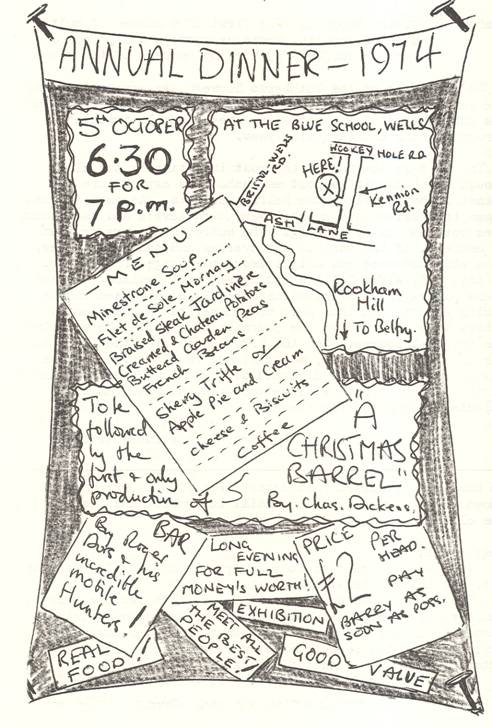 ANNUAL DINNER - 1974
5TH OCTOBER
6.30
FOR
7 p.m.
AT THE BLUE SCHOOL, WELLS
BRISTOL-WELLS
RD.
HERE!
X
WOOKEY HOLE RD.
Kennion
Rd.
ASH LANE
Rookham
Hill
To Belfry.
- MENU -
Minestrone Soup
Filet de Sole Mornay
Braised Steak Jardinière
Creamed & Chateau Potatoes
Butterd Garden Peas
French Beans
Sherry Trifle or
Apple Pie and Cream
Cheese & Biscuits
Coffee
To be
followed
by the
first & only
production of
"A
CHRISTMAS
BARREL"
By. Chas. Dickens.
BAR
By Roger
Dors & his
incredible
motile
Hunters!
LONG
EVENING
FOR FULL
MONEY'S WORTH!
PRICE
£2 PER
HEAD.
PAY
BARRY AS
SOON AS POSS.
EXHIBITION
MEET ALL
THE BEST
PEOPLE!
REAL
FOOD!
GOOD VALUE